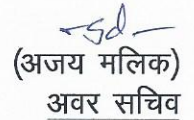 -sd-
(अजय मलिक)
अवर सचिव